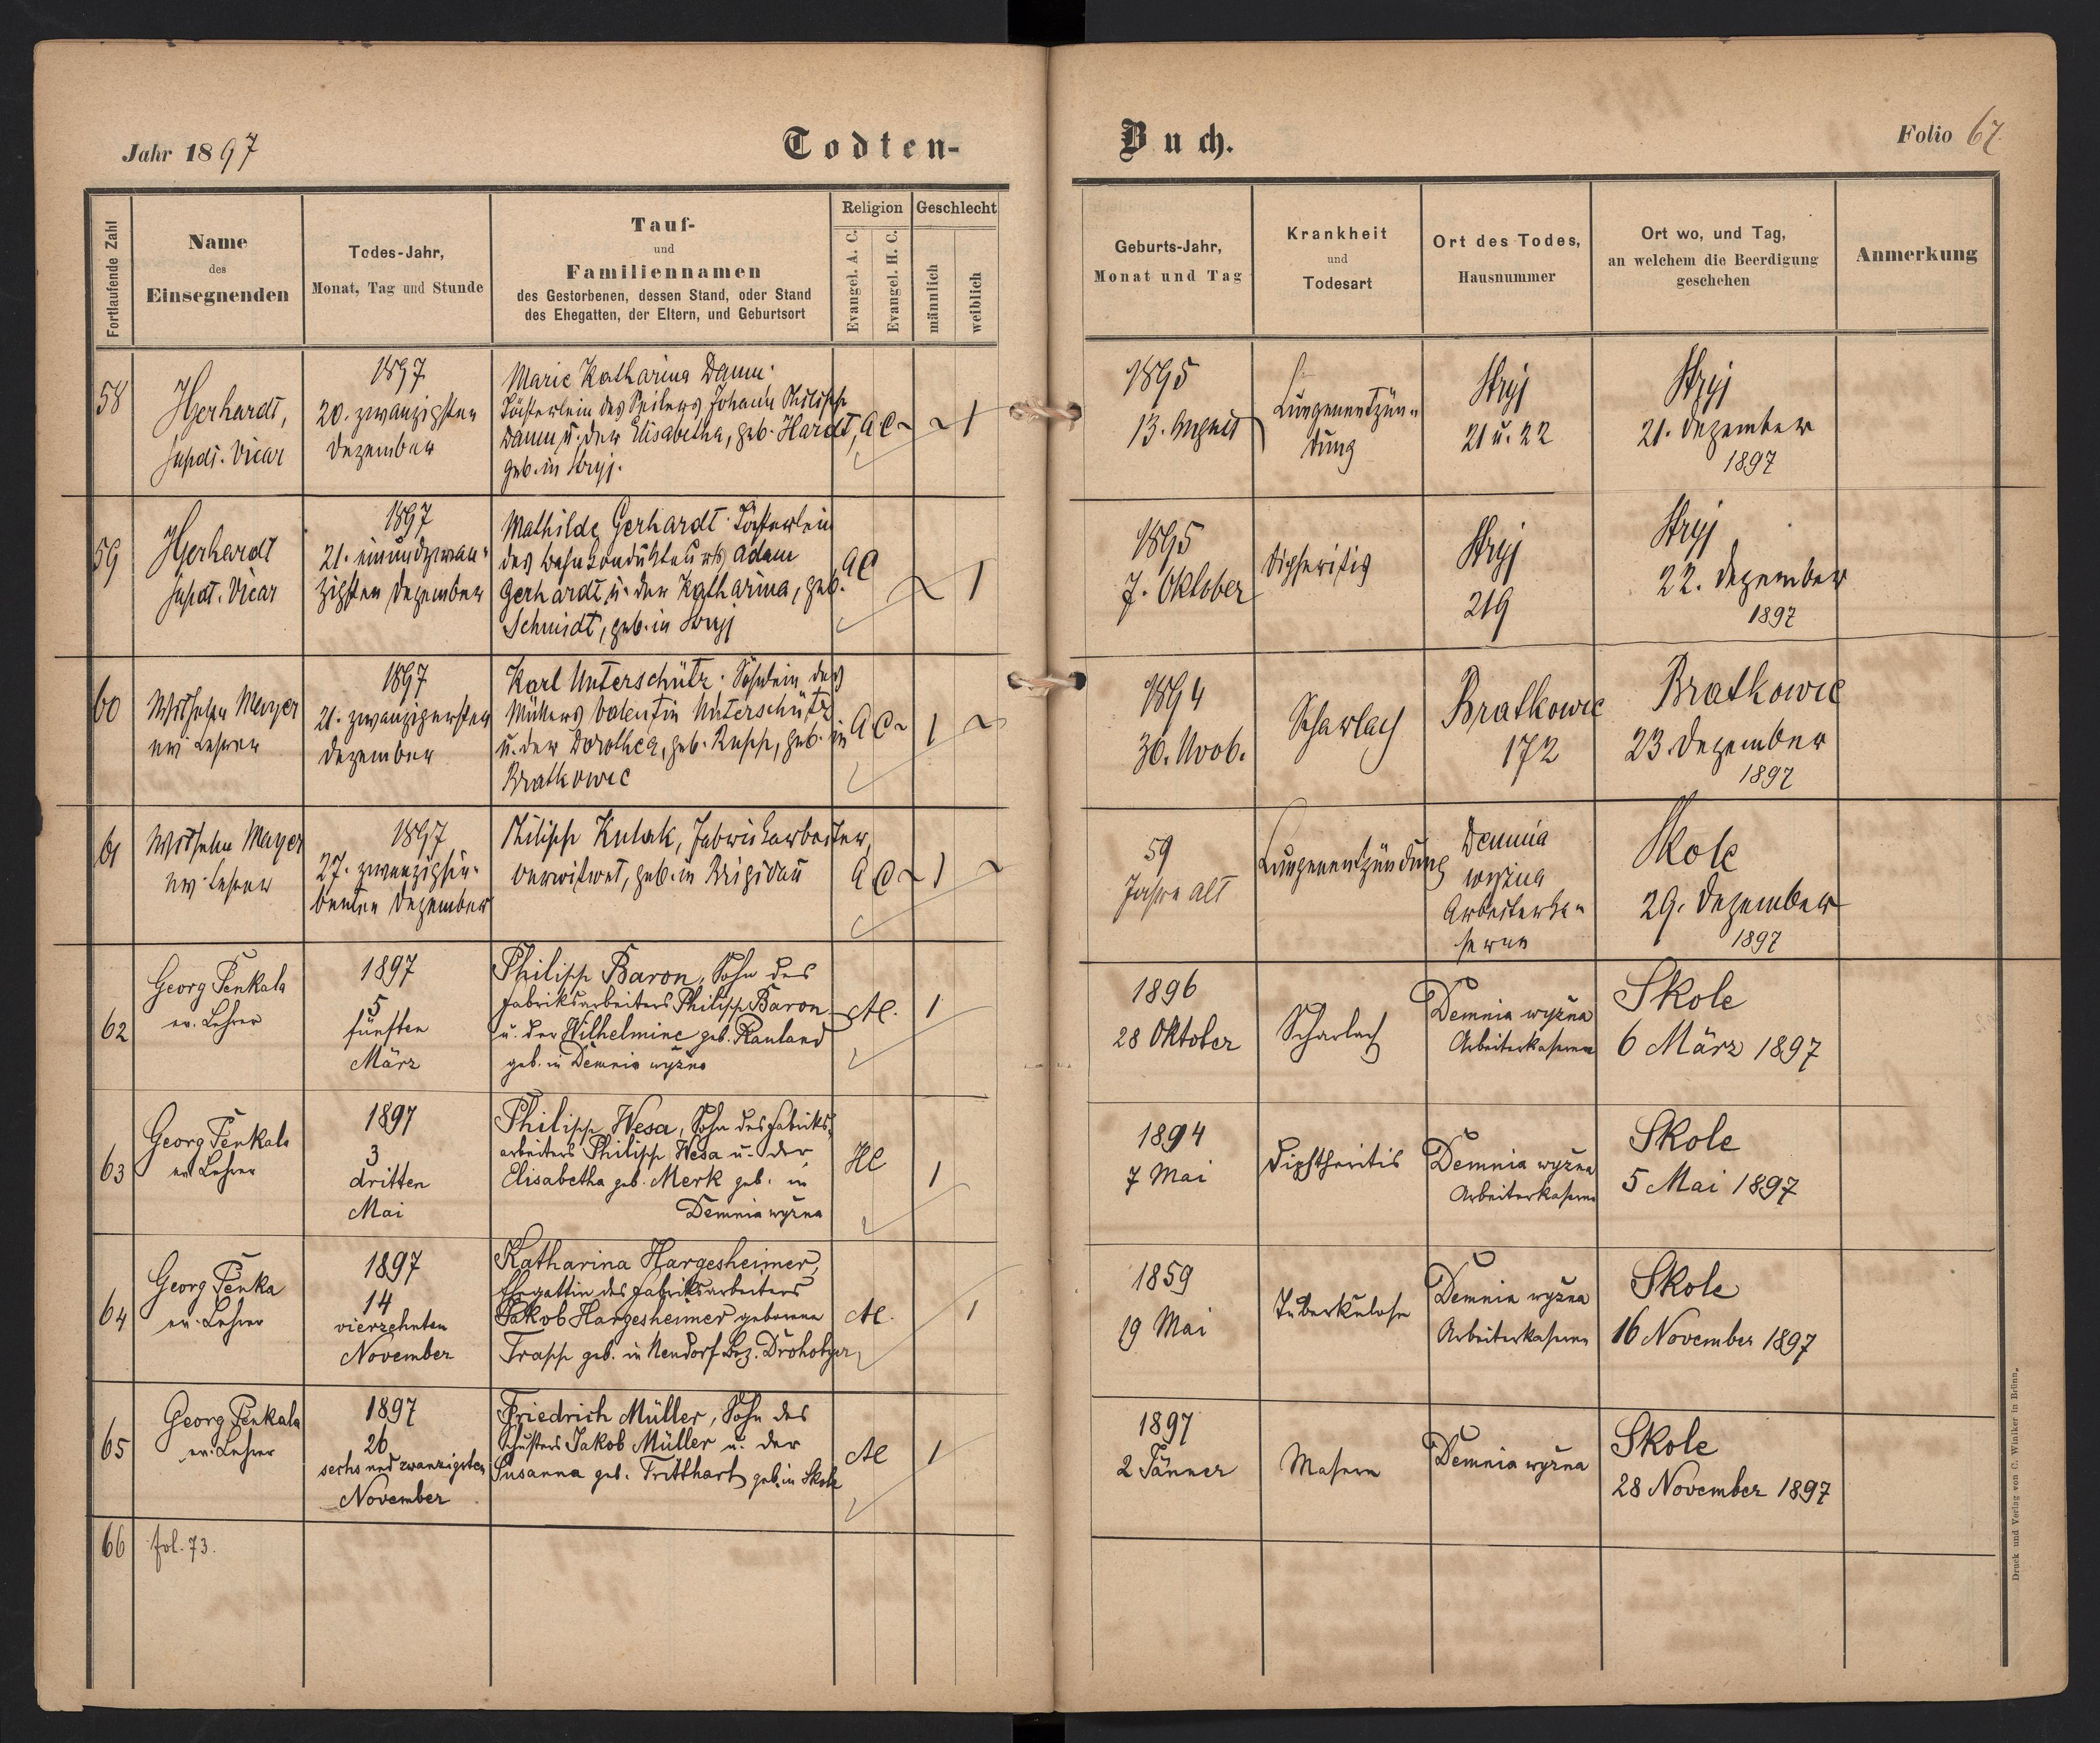 Jahr 1897
Todten-
Buch.
Folio 67
Fortlaufende Zahl
Name
des
Einsegnenden
Todes-Jahr,
Monat, Tag und Stunde
Tauf-
und
Familiennamen
des Gestorbenen, dessen Stand, oder Stand
des Ehegatten, der Eltern, und Geburtsort
Religion
Evangel. A. C.
Evangel. H. C.
Geschlecht
männlich
weiblich
Geburts-Jahr,
Monat und Tag
Krankheit
und
Todesart
Ort des Todes,
Hausnummer
Ort wo, und Tag,
an welchem die Beerdigung
geschehen
Anmerkung
58
Gerhardt,
Supdt. Vicar
1897
20. zwanzigsten
Dezember
Marie Katharina Damm.
Töchterlein des Seilers Johann Philipp
Damm u. der Elisabetha, geb. Hardt,
geb. in Stryj.
A.C ~
~
1
1895
13. August
Lungenentzün-
dung
Stryj
21 u. 22
Stryj
21. Dezember
1897
59
Gerhardt
Supdt. Vicar
1897
21. einundzwan-
zigsten Dezember
Mathilde Gerhardt. Töchterlein
des Bahnkondukteurs Adam
Gerhardt u. der Katharina, geb.
Schmidt, geb. in Stryj
AC
~
1
1895
7. Oktober
Dipheritis
Stryj
219
Stryj
22. Dezember
1897
60
Wilhelm Mayer
ev. Lehrer
1897
21. zwanzigersten
Dezember
Karl Unterschütz. Söhnlein des
Müllers Valentin Unterschütz
u. der Dorothea, geb. Rupp, geb. in
Bratkowce
A C ~
1
~
1894
30. Novb.
Scharlach
Bratkowce
172
Bratkowce
23. Dezember
1897
61
Wilhelm Mayer
ev. Lehrer
1897
27. zwanzigsie-
benten Dezember
Philipp Kulak, Fabriksarbeiter,
verwitwet, geb. in Brigidau
A C ~
1
~
59
Jahre alt
Lungenentzündung
Demnia
wyżna
Arbeiterka-
serne
Skole
29. Dezember
1897
62
Georg Penkala
ev. Lehrer
1897
5
fünften
März
Philipp Baron, Sohn des
Fabriksarbeiters Philipp Baron
u. der Wilhelmine geb. Rauland
geb. in Demnia wyżna
AC.
1
1896
28 Oktober
Scharlach
Demnia wyżna
Arbeiterkaserne
Skole
6 März 1897
63
Georg Penkala
ev. Lehrer
1897
3
dritten
Mai
Philipp Wesa, Sohn des Fabriks-
arbeiters Philipp Wesa u. der
Elisabetha geb. Merk geb. in
Demnia wyżna
HC
1
1894
7 Mai
Diphtheritis
Demnia wyżna
Arbeiterkaserne
Skole
5 Mai 1897
64
Georg Penka
ev. Lehrer
1897
14
vierzehnten
November
Katharina Hargesheimer,
Ehegattin des Fabriksarbeiters
Jakob Hargesheimer geborene
Trapp geb. in Neudorf Bez. Drohobycz
AC.
1
1859
19 Mai
Tuberkulose
Demnia wyżna
Arbeiterkaserne
Skole
16 November 1897
65
Georg Penkala
ev. Lehrer
1897
26
sechs und zwanzigsten
November
Friedrich Müller, Sohn des
Schusters Jakob Müller u. der
Susanna geb. Tritthart geb. in Skole
AC
1
1897
2 Jänner
Masern
Demnia wyżna
Skole
28 November 1897
66
fol. 73.
Druck und Verlag von C. Winiker in Brünn.